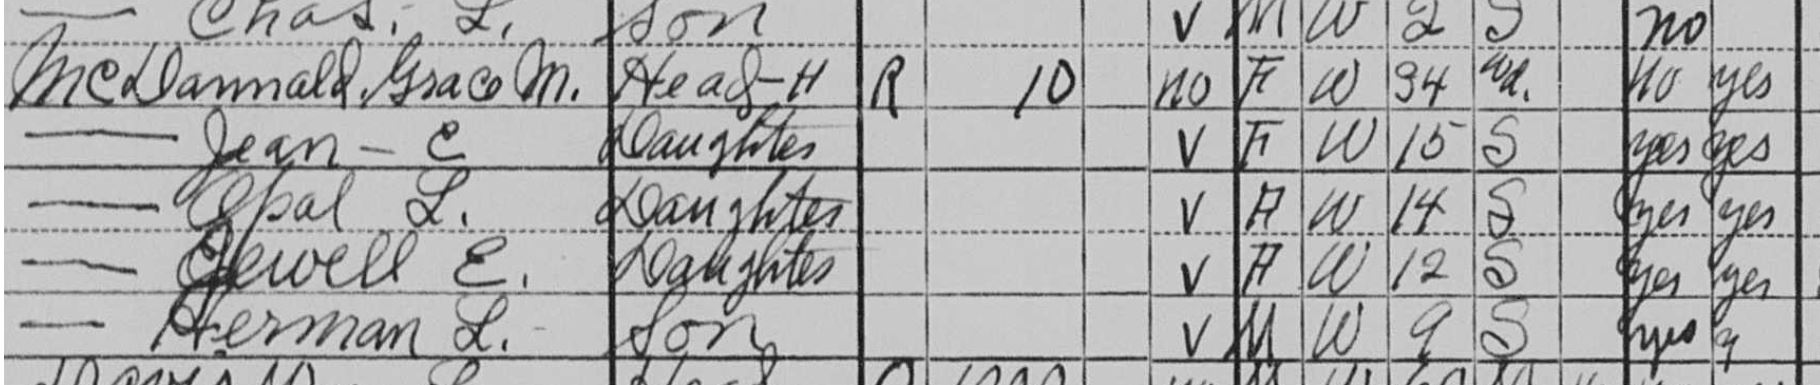 — Chas. L. Son V M W 2 S no
McDannald, Grace M. Head-H R 10 no F W 34 Wd. no yes
— Jean - E Daughter V F W 15 S yes yes
— Opal L. Daughter V F W 14 S yes yes
— Jewell E. Daughter V F W 12 S yes yes
— Herman L. Son V M W 9 S yes
Head O